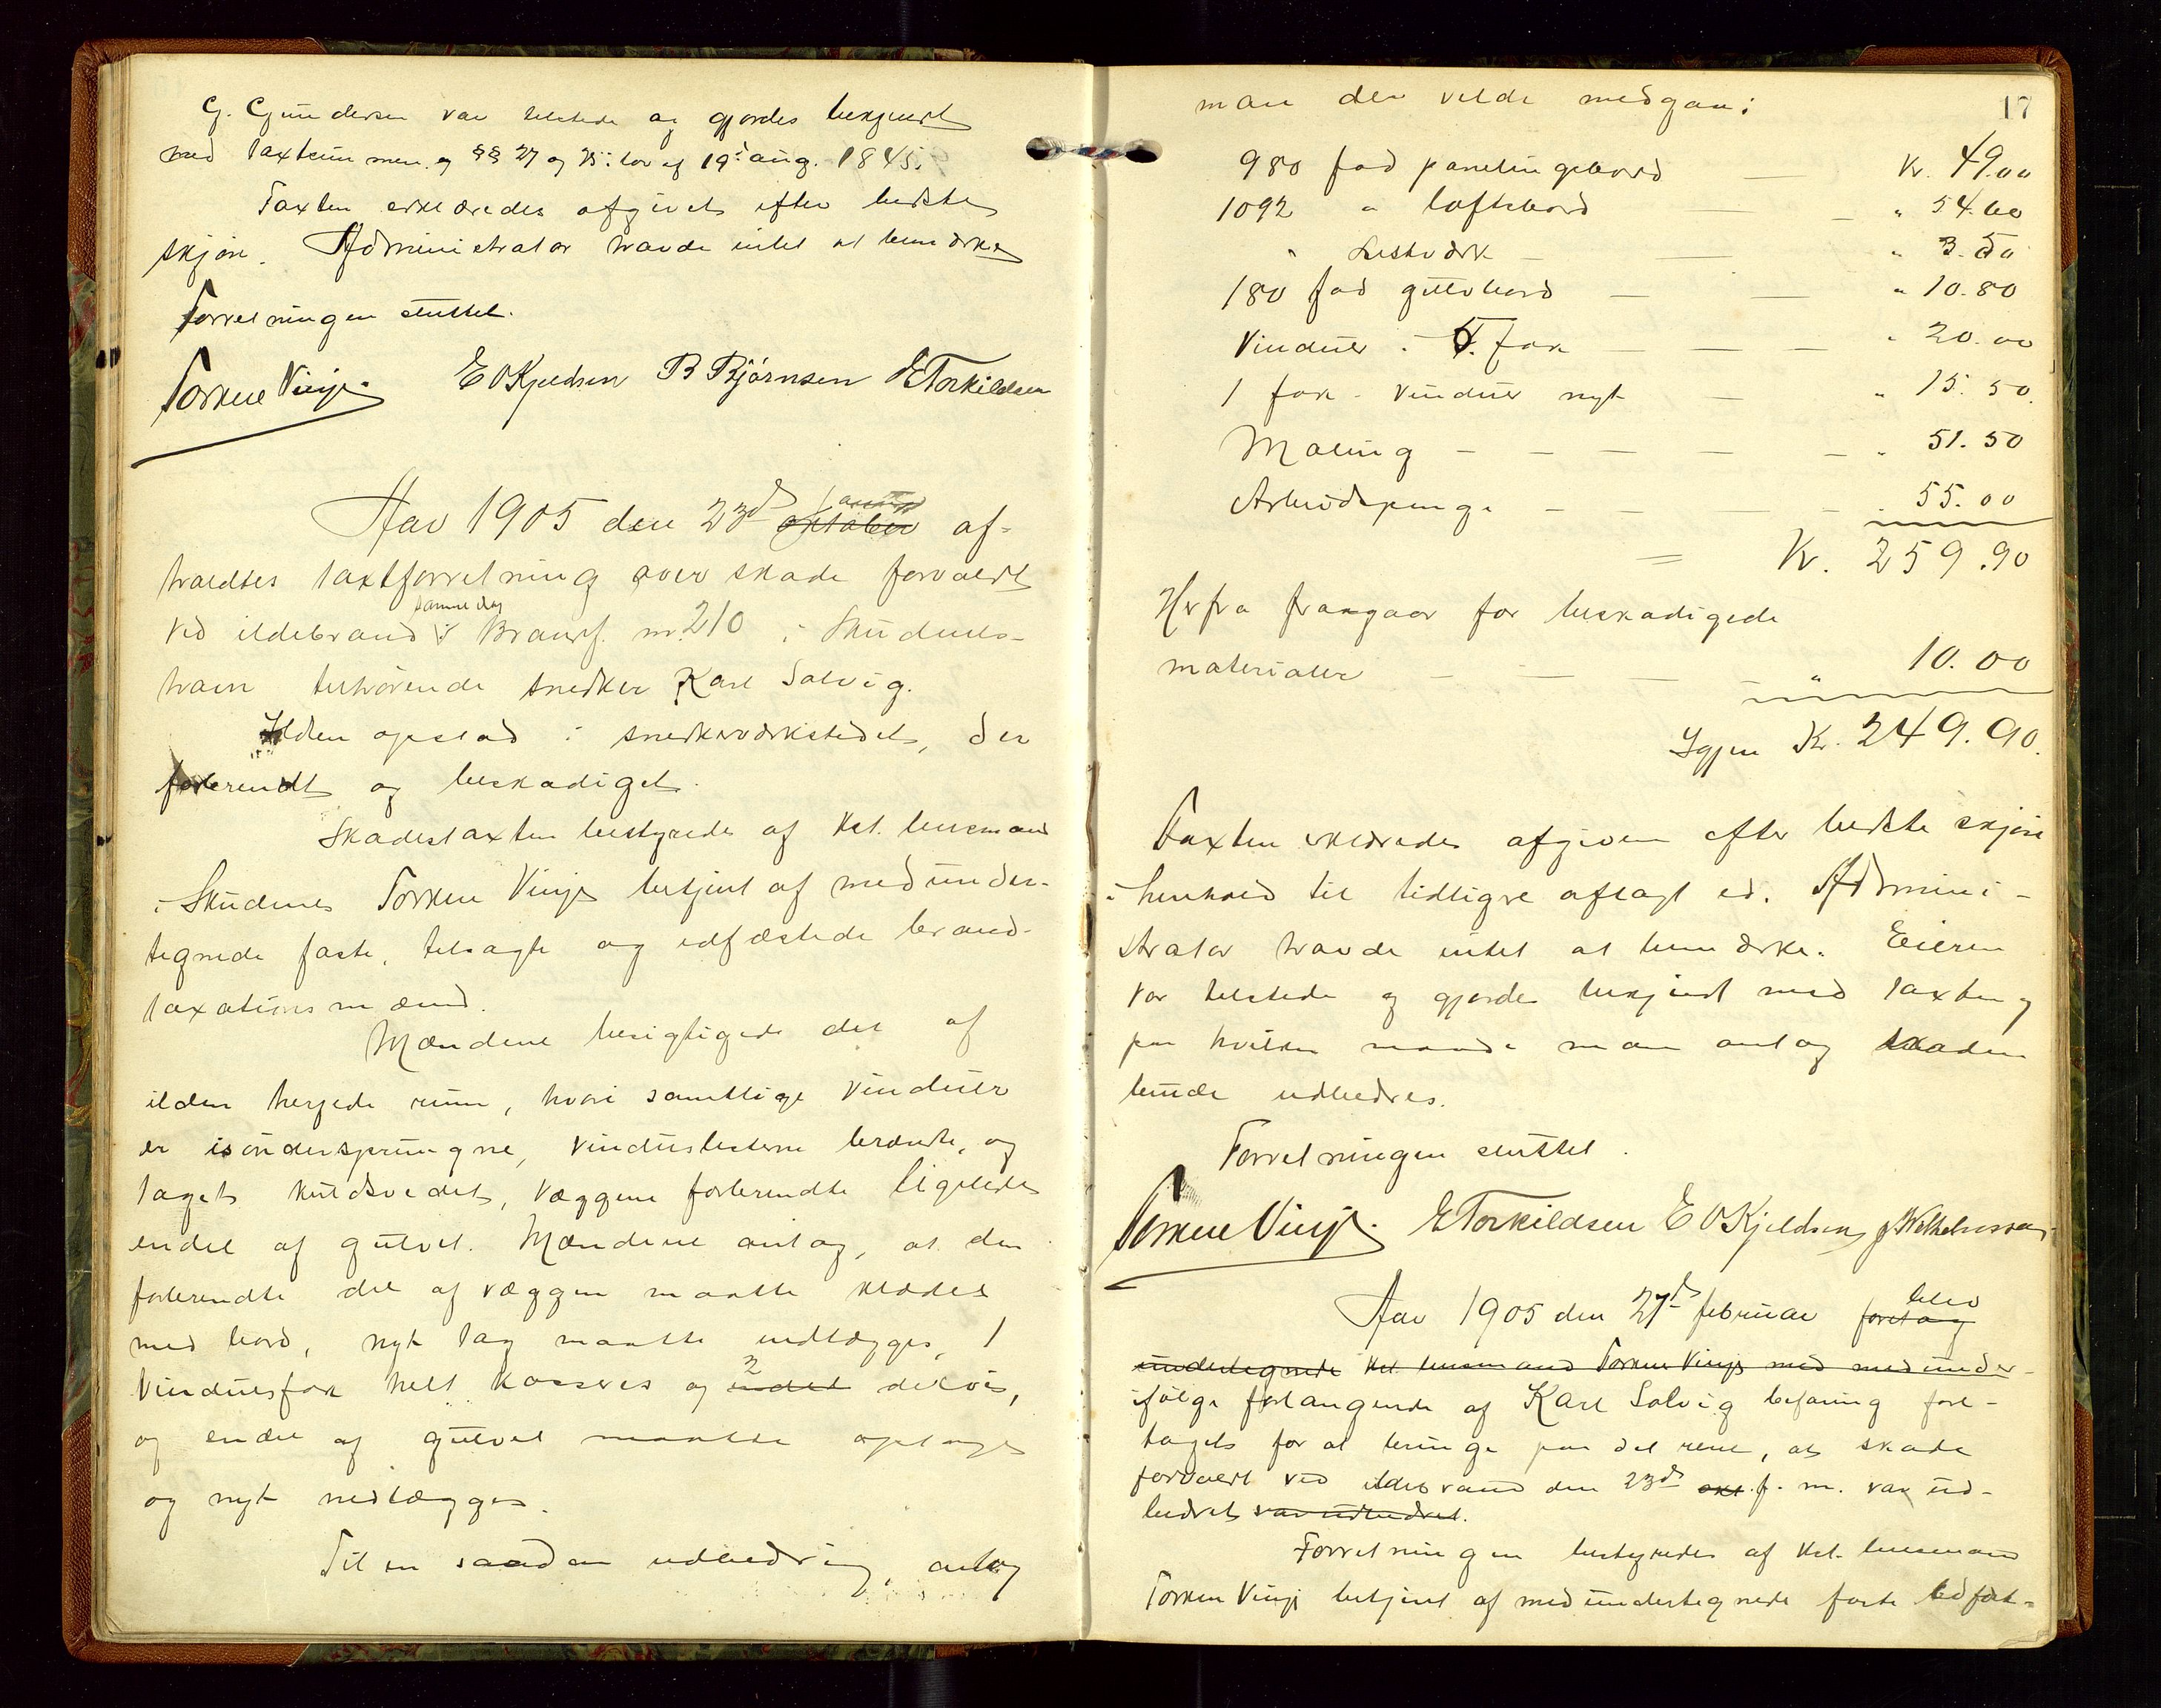 G. Gundersen var tilstede og gjordes bekjendt
med taxtsummen og §§ 27 og 25 i lov af 19d aug. 1845.
Taxten erklæredes afgivet efter bedste
skjøn. Administrator havde intet at bemærke
Forretningen sluttet.
Torkel Vinje. E O Kjeldsen B Bjørnsen E Torkildsen
Aar 1905 den 23d oktober januar af-
holdtes taxtforretning over skade forvoldt
samme dag
ved ildebrand i Brandf. nr. 210 i Skudenes-
havn tilhørende snedker Karl Solvig.
Ilden opstod i snedkerværkstedet, der
forbrendt og beskadiget.
Skadestaxten bestyredes af Kst. lensmand
i Skudenes Torkel Vinje betjent af medunder-
tegnede faste, tilsagte og edfæstede brand-
taxationsmænd.
Mændene besigtigede det af
ilden herjede rum, hvori samtlige vinduer
er isøndersprungne, vinduslisterne brændte, og
taget kuldsvedet, væggene forbrendte ligeledes
endel af gulvet. Mændene antog, at den
forbrendte del af væggen maatte klædes
med bord, nyt tag maatte indlægges, 1
2
Vinduesfag helt kasseres og andet delvis,
og endel af gulvet maatte optages
og nyt nedlægges.
Til en saadan udbedring, antog
17
man der vilde medgaa:
980 fod panelingsbord — Kr. 49.00
1092 " loftsbord — " 54.60
" Listværk — " 3.50
180 fod gulvbord — " 10.80
Vinduer i 5. fag — " 20.00
1 fag vinduer nyt — " 15.50
Maling — " 51.50
Arbeidspenge — " 55.00
= Kr. 259.90
Herfra fragaar for beskadigede
materialer — " 10.00
Igjen Kr. 249.90.
Taxten erklæredes afgiven efter bedste skjøn
i henhold til tidligre aflagt ed. Admini-
strator havde intet at bemærke. Eieren
var tilstede og gjordes bekjendt med taxten og
paa hvilken maade man antog skaden
burde udbedres.
Forretningen sluttet.
Torkel Vinje. E Torkildsen E O Kjeldsen J Wilhelmsen
blev
Aar 1905 den 27d februar foretog
undertegnede kst. lensmand Torkel Vinje med medunder-
ifølge forlangende af Karl Solvig befaring fore-
tagets for at bringe paa det rene, at skade
forvoldt ved ildebrand den 23d okt. f. m. var ud-
bedret var udbedret.
Forretningen bestyredes af kst. lensmand
Torkel Vinje betjent af medundertegnede faste edfæst-